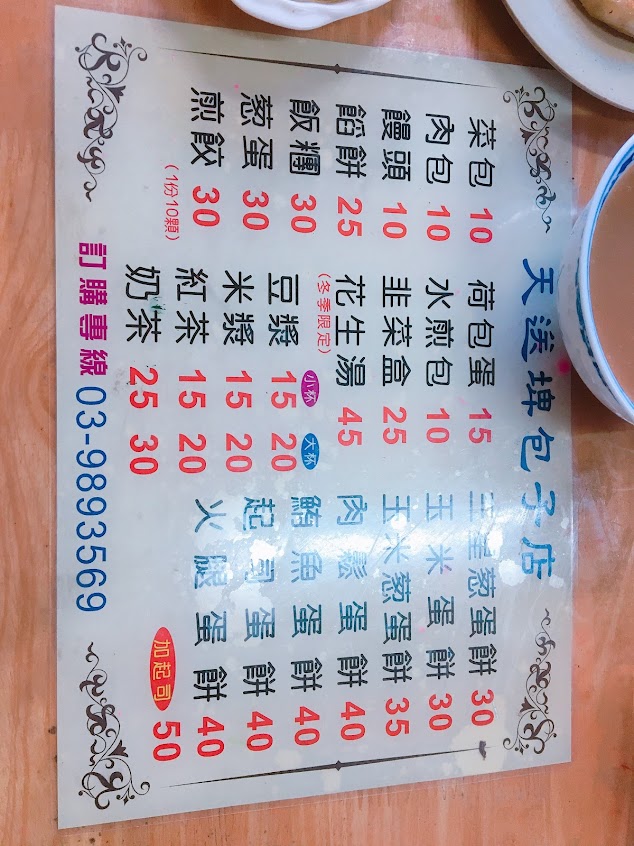 天送埤包子店
菜包 10
肉包 10
饅頭 10
餡餅 25
飯糰 30
葱蛋 30
煎餃 30
(1份10顆)
荷包蛋 15
水煎包 10
韭菜盒 25
花生湯 45
(冬季限定)
小杯 大杯
豆漿 15 20
米漿 15 20
紅茶 15 20
奶茶 25 30
三星葱蛋餅 30
玉米蛋餅 30
玉米葱蛋餅 35
肉鬆蛋餅 40
鮪魚蛋餅 40
起司蛋餅 40
火腿蛋餅 40
加起司 50
訂購專線 03-9893569